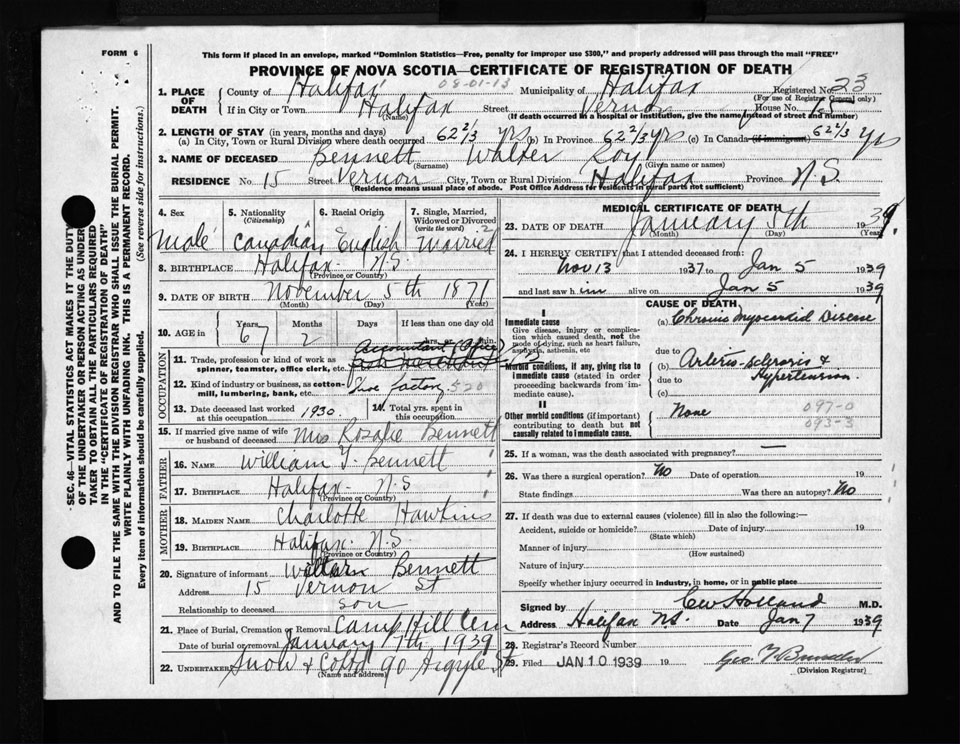 FORM 6
This form if placed in an envelope, marked "Dominion Statistics—Free, penalty for improper use $300," and properly addressed will pass through the mail "FREE"
PROVINCE OF NOVA SCOTIA—CERTIFICATE OF REGISTRATION OF DEATH
08-01-13
1. PLACE OF DEATH
County of Halifax Municipality of Halifax Registered No. 23
(For use of Registrar General only)
If in City or Town Halifax Street Vernon House No. 15
(Name) (If death occurred in a hospital or institution, give the name instead of street and number)
2. LENGTH OF STAY (in years, months and days)
(a) In City, Town or Rural Division where death occurred 62 2/3 yrs (b) In Province 62 2/3 yrs (c) In Canada (if immigrant) 62 2/3 yrs
3. NAME OF DECEASED Bennett Walter Roy
(Given name or names)
RESIDENCE No. 15 Street Vernon City, Town or Rural Division Halifax Province N.S.
(Residence means usual place of abode. Post Office Address for residents in rural parts not sufficient)
4. Sex Male
5. Nationality (Citizenship) Canadian
6. Racial Origin English
7. Single, Married, Widowed or Divorced (write the word) 2
Married
8. BIRTHPLACE Halifax N.S.
(Province or Country)
9. DATE OF BIRTH November 5th 1871
(Month) (Day) (Year)
10. AGE in Years Months Days If less than one day
67 2 min.
OCCUPATION
11. Trade, profession or kind of work as spinner, teamster, office clerk, etc. Accountant (Office)
12. Kind of industry or business, as cotton-mill, lumbering, bank, etc. factory 520
13. Date deceased last worked at this occupation 1930
14. Total yrs. spent in this occupation
15. If married give name of wife or husband of deceased Mrs Rozalie Bennett
FATHER
16. NAME William J. Bennett
17. BIRTHPLACE Halifax- N.S
(Province or Country)
MOTHER
18. MAIDEN NAME Charlotte Hawkins
19. BIRTHPLACE Halifax- N.S.
(Province or Country)
20. Signature of informant William Bennett
Address 15 Vernon St
Relationship to deceased son
21. Place of Burial, Cremation or Removal Camp Hill Cem
Date of burial or removal January 7th 1939
22. Undertaker Snow & Co Ltd 90 Argyle St
(Name and address)
MEDICAL CERTIFICATE OF DEATH
23. DATE OF DEATH January 5th 1939
(Month) (Day) (Year)
24. I HEREBY CERTIFY that I attended deceased from:
Nov 13 1937 to Jan 5 1939
and last saw him alive on Jan 5 1939
CAUSE OF DEATH
I
Immediate cause
Give disease, injury or complication which caused death, not the mode of dying, such as heart failure, asphyxia, asthenia, etc
(a) Chronic Myocardial Disease
due to
Morbid conditions, if any, giving rise to immediate cause (stated in order proceeding backwards from immediate cause).
(b) Arterio-sclerosis & Hypertension
due to
(c)
II
Other morbid conditions (if important) contributing to death but not causally related to immediate cause.
None
097-0
093-3
25. If a woman, was the death associated with pregnancy?
26. Was there a surgical operation? No Date of operation 19
State findings Was there an autopsy? No
27. If death was due to external causes (violence) fill in also the following:—
Accident, suicide or homicide? Date of injury 19
(State which)
Manner of injury
(How sustained)
Nature of injury
Specify whether injury occurred in industry, in home, or in public place
Signed by CW Holland M.D.
Address Halifax N.S. Date Jan 7 1939
28. Registrar's Record Number
29. Filed JAN 10 1939 19
(Division Registrar)
SEC. 46—VITAL STATISTICS ACT MAKES IT THE DUTY
OF THE UNDERTAKER OR PERSON ACTING AS UNDERTAKER TO OBTAIN ALL THE PARTICULARS REQUIRED
IN THE "CERTIFICATE OF REGISTRATION OF DEATH"
AND TO FILE THE SAME WITH THE DIVISION REGISTRAR WHO SHALL ISSUE THE BURIAL PERMIT.
WRITE PLAINLY WITH UNFADING INK. THIS IS A PERMANENT RECORD.
Every item of information should be carefully supplied. (See reverse side for instructions.)